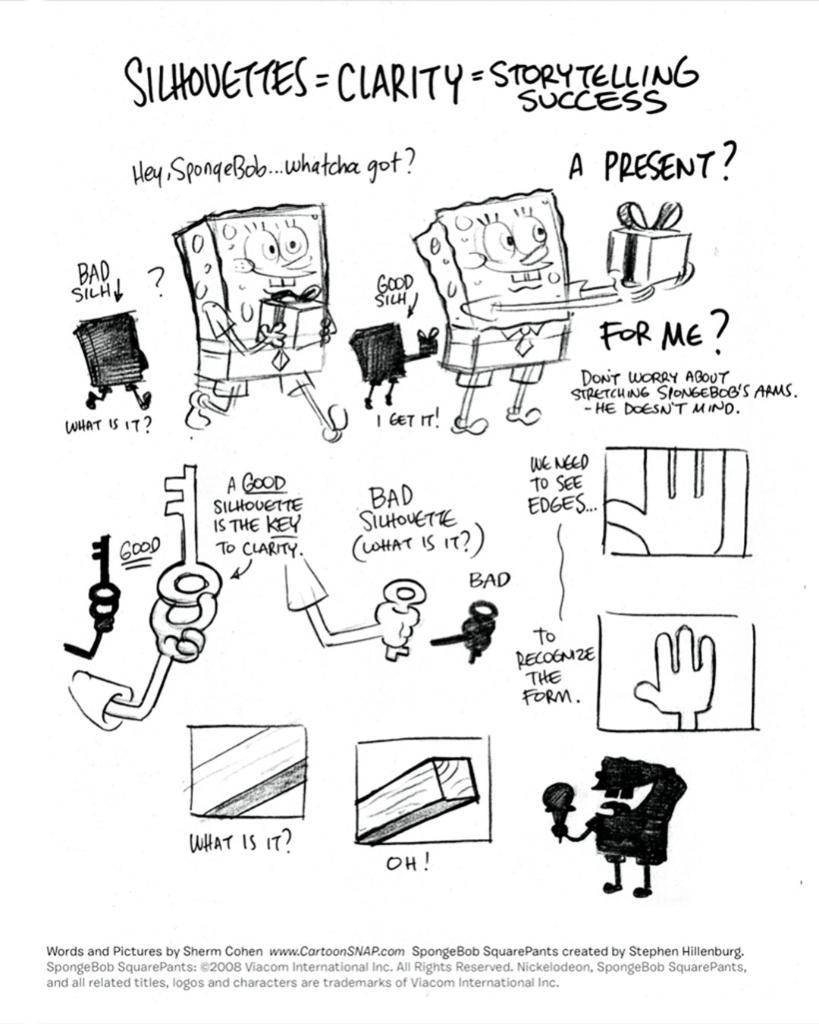 SILHOUETTES = CLARITY = STORYTELLING
SUCCESS
Hey, SpongeBob...whatcha got?
A PRESENT?
BAD
SILH
?
GOOD
SILH
FOR ME?
WHAT IS IT?
I GET IT!
DON'T WORRY ABOUT
STRETCHING SPONGEBOB'S ARMS.
- HE DOESN'T MIND.
GOOD
A GOOD
SILHOUETTE
IS THE KEY
TO CLARITY.
BAD
SILHOUETTE
(WHAT IS IT?)
BAD
WE NEED
TO SEE
EDGES...
TO
RECOGNIZE
THE
FORM.
WHAT IS IT?
OH!
Words and Pictures by Sherm Cohen www.CartoonSNAP.com SpongeBob SquarePants created by Stephen Hillenburg.
SpongeBob SquarePants: ©2008 Viacom International Inc. All Rights Reserved. Nickelodeon, SpongeBob SquarePants,
and all related titles, logos and characters are trademarks of Viacom International Inc.